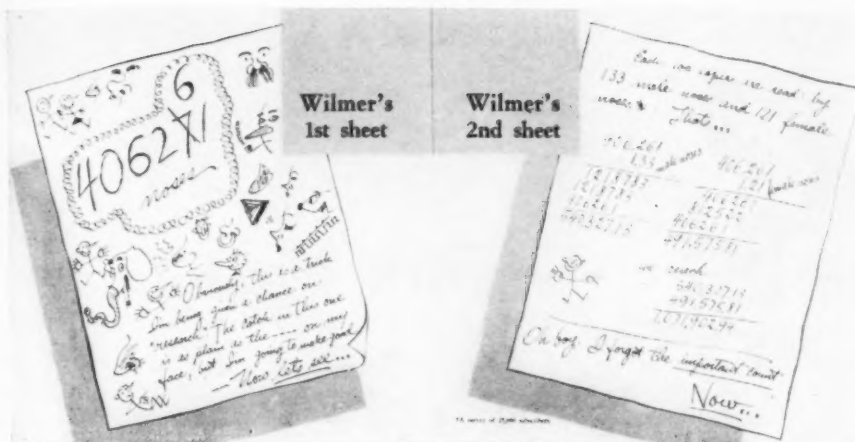 Wilmer's
1st sheet
Wilmer's
2nd sheet
6
406271
noses
Obviously, this is a trick
I'm being given a chance on
"research". The catch in this one
is as plain as the ---- on my
face, but I'm going to make good
Now lets see...
Each 100 copies are read by
133 male noses and 121 female
noses* That...
406261
133 male noses
1218783
1218783
406261
54032713
406261
121 female noses
406261
812522
406261
49157581
we reach
54032713
49157581
Oh boy. I forgot the important count
Now...